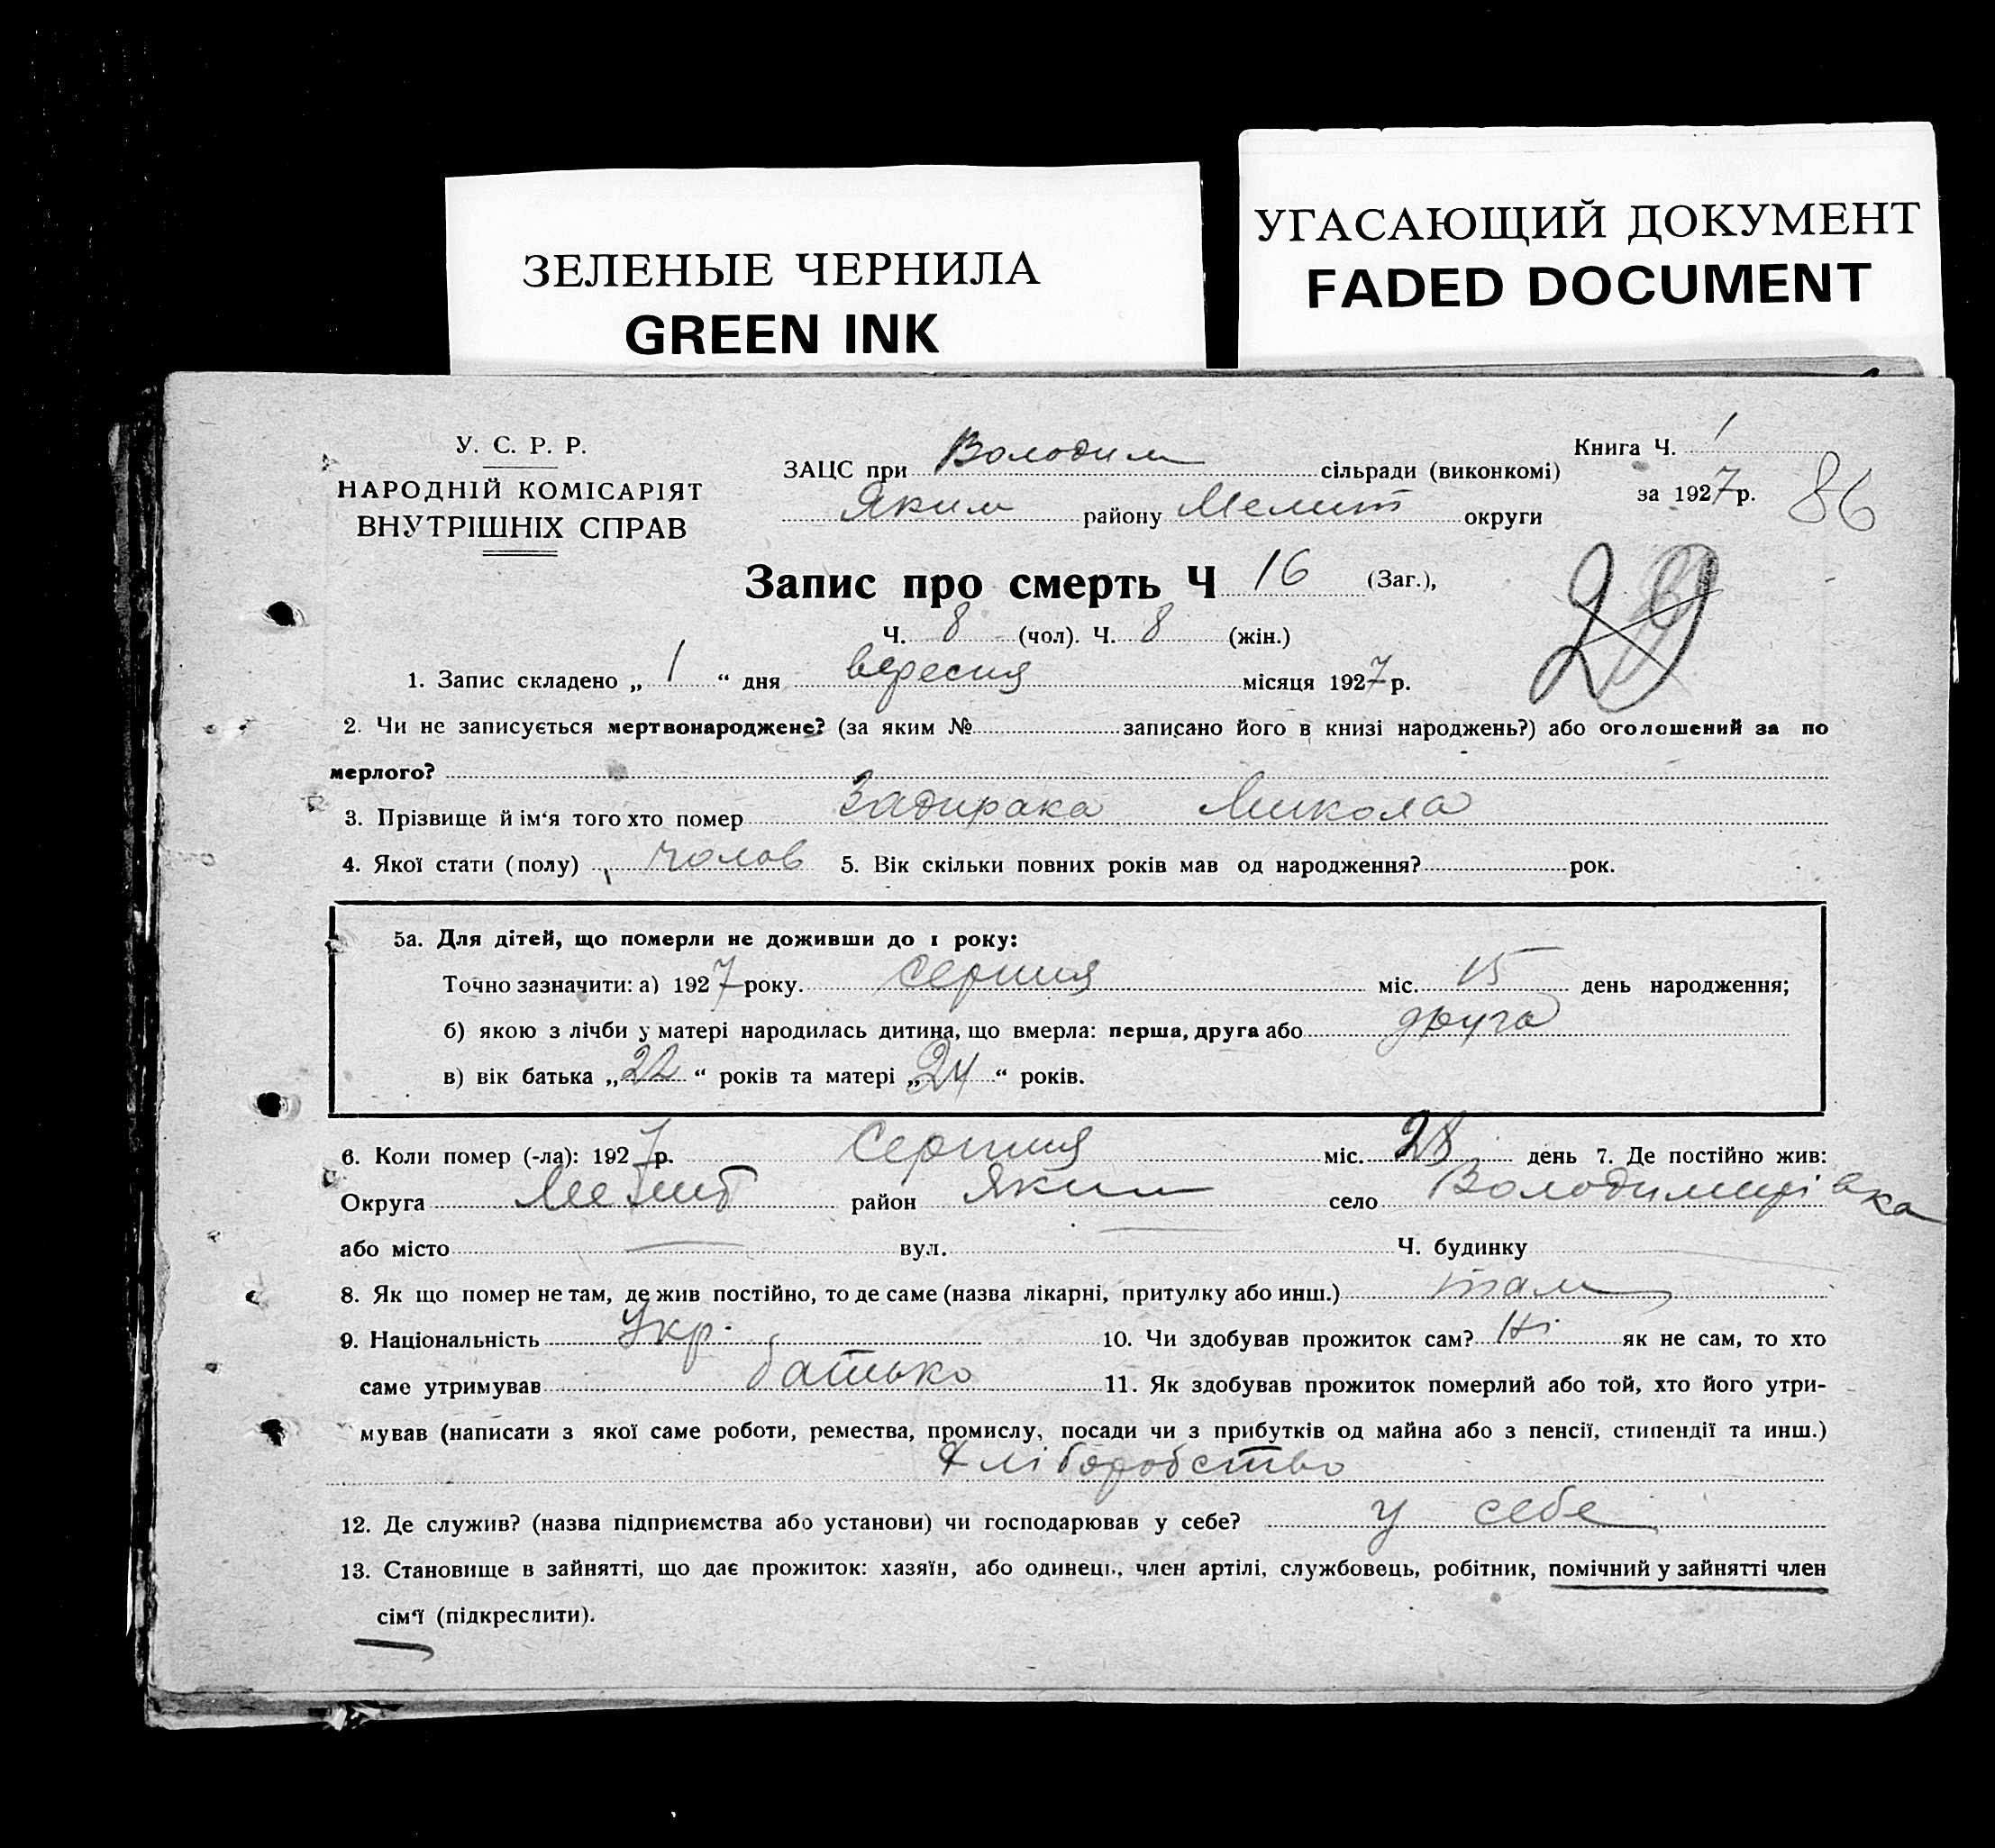 ЗЕЛЕНЫЕ ЧЕРНИЛА
GREEN INK
УГАСАЮЩИЙ ДОКУМЕНТ
FADED DOCUMENT
У. С. Р. Р.
НАРОДНІЙ КОМІСАРІЯТ
ВНУТРІШНІХ СПРАВ
ЗАЦС при Володим сільради (виконкомі)
Яким району Мелит округи
Книга Ч. 1
за 1927 р.
86
29
Запис про смерть Ч 16 (Заг.),
Ч. 8 (чол). Ч. 8 (жін.)
1. Запис складено „ 1 “ дня вересня місяця 1927 р.
2. Чи не записується мертвонароджене? (за яким № записано його в книзі народжень?) або оголошений за по
мерлого?
3. Прізвище й ім‘я того хто помер Задирака Микола
4. Якої стати (полу) чолов 5. Вік скільки повних років мав од народження? рок.
5а. Для дітей, що померли не доживши до 1 року:
Точно зазначити: а) 1927 року. серпня міс. 15 день народження;
б) якою з лічби у матері народилась дитина, що вмерла: перша, друга або друга
в) вік батька „ 22 “ років та матері „ 24 “ років.
6. Коли помер (-ла): 1927 р. Серпня міс. 28 день 7. Де постійно жив:
Округа Мелит район Яким село Володимирівка
або місто — вул. — Ч. будинку
8. Як що помер не там, де жив постійно, то де саме (назва лікарні, притулку або инш.) там
9. Національність Укр. 10. Чи здобував прожиток сам? Ні як не сам, то хто
саме утримував батько 11. Як здобував прожиток померлий або той, хто його утри-
мував (написати з якої саме роботи, ремества, промислу, посади чи з прибутків од майна або з пенсії, стипендії та инш.)
Хліборобство
12. Де служив? (назва підприємства або установи) чи господарював у себе? у себе
13. Становище в зайнятті, що дає прожиток: хазяїн, або одинець, член артілі, службовець, робітник, помічний у зайнятті член
сім‘ї (підкреслити).